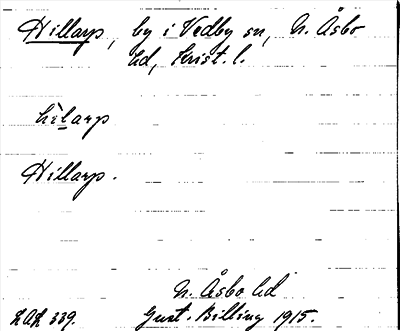 Hillarp, by i Vedby sn, N. Åsbo
hd, Krist. l.
hìlarp
Hillarp.
N. Åsbo hd
Gust. Billing 1915.